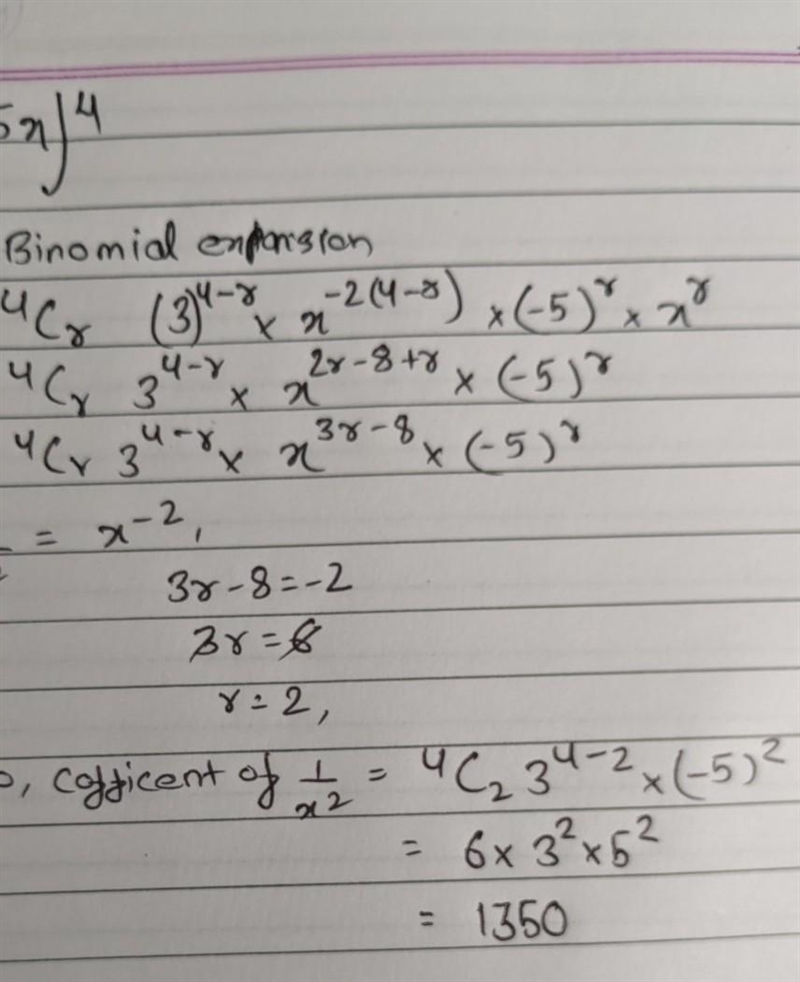 5x)⁴
Binomial expansion
⁴Cᵣ (3)⁴⁻ʳ × x⁻²⁽⁴⁻ʳ⁾ × (-5)ʳ × xʳ
⁴Cᵣ 3⁴⁻ʳ × x²ʳ⁻⁸⁺ʳ × (-5)ʳ
⁴Cᵣ 3⁴⁻ʳ × x³ʳ⁻⁸ × (-5)ʳ
= x⁻²,
3r-8=-2
3r=6
r=2,
, Cofficent of 1/x² = ⁴C₂ 3⁴⁻² × (-5)²
= 6 × 3² × 5²
= 1350